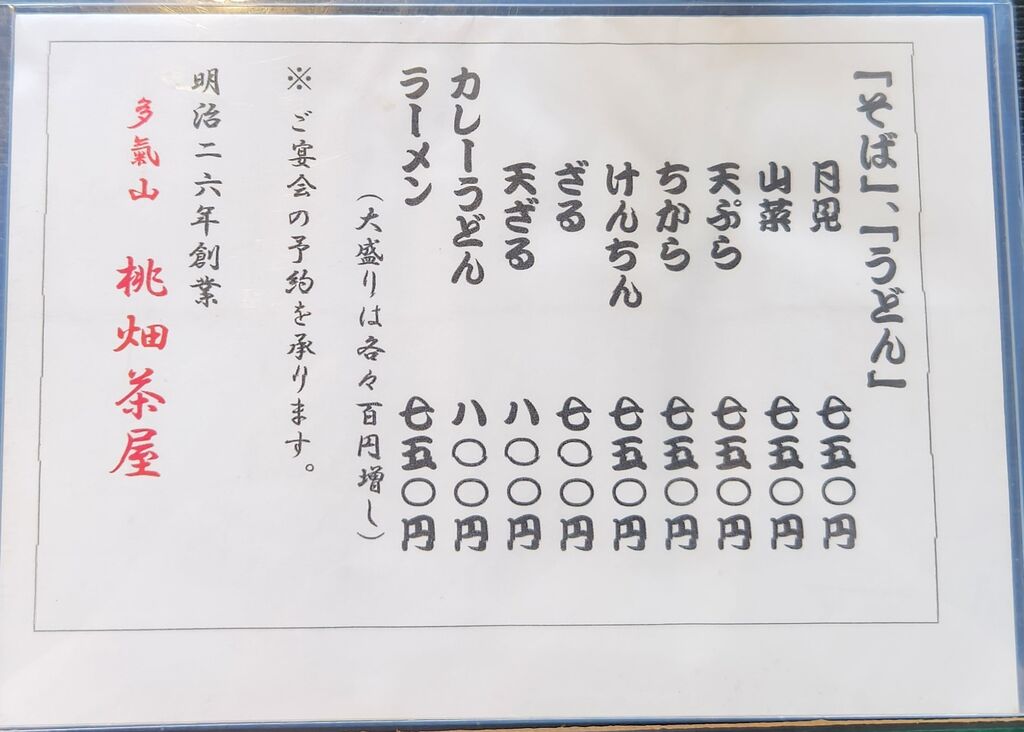 「そば」、「うどん」
月見 七五〇円
山菜 七五〇円
天ぷら 七五〇円
ちから 七五〇円
けんちん 七五〇円
ざる 七〇〇円
天ざる 八〇〇円
カレーうどん 八〇〇円
ラーメン 七五〇円
（大盛りは各々百円増し）
※ご宴会の予約を承ります。
明治二六年創業
多氣山 桃畑茶屋